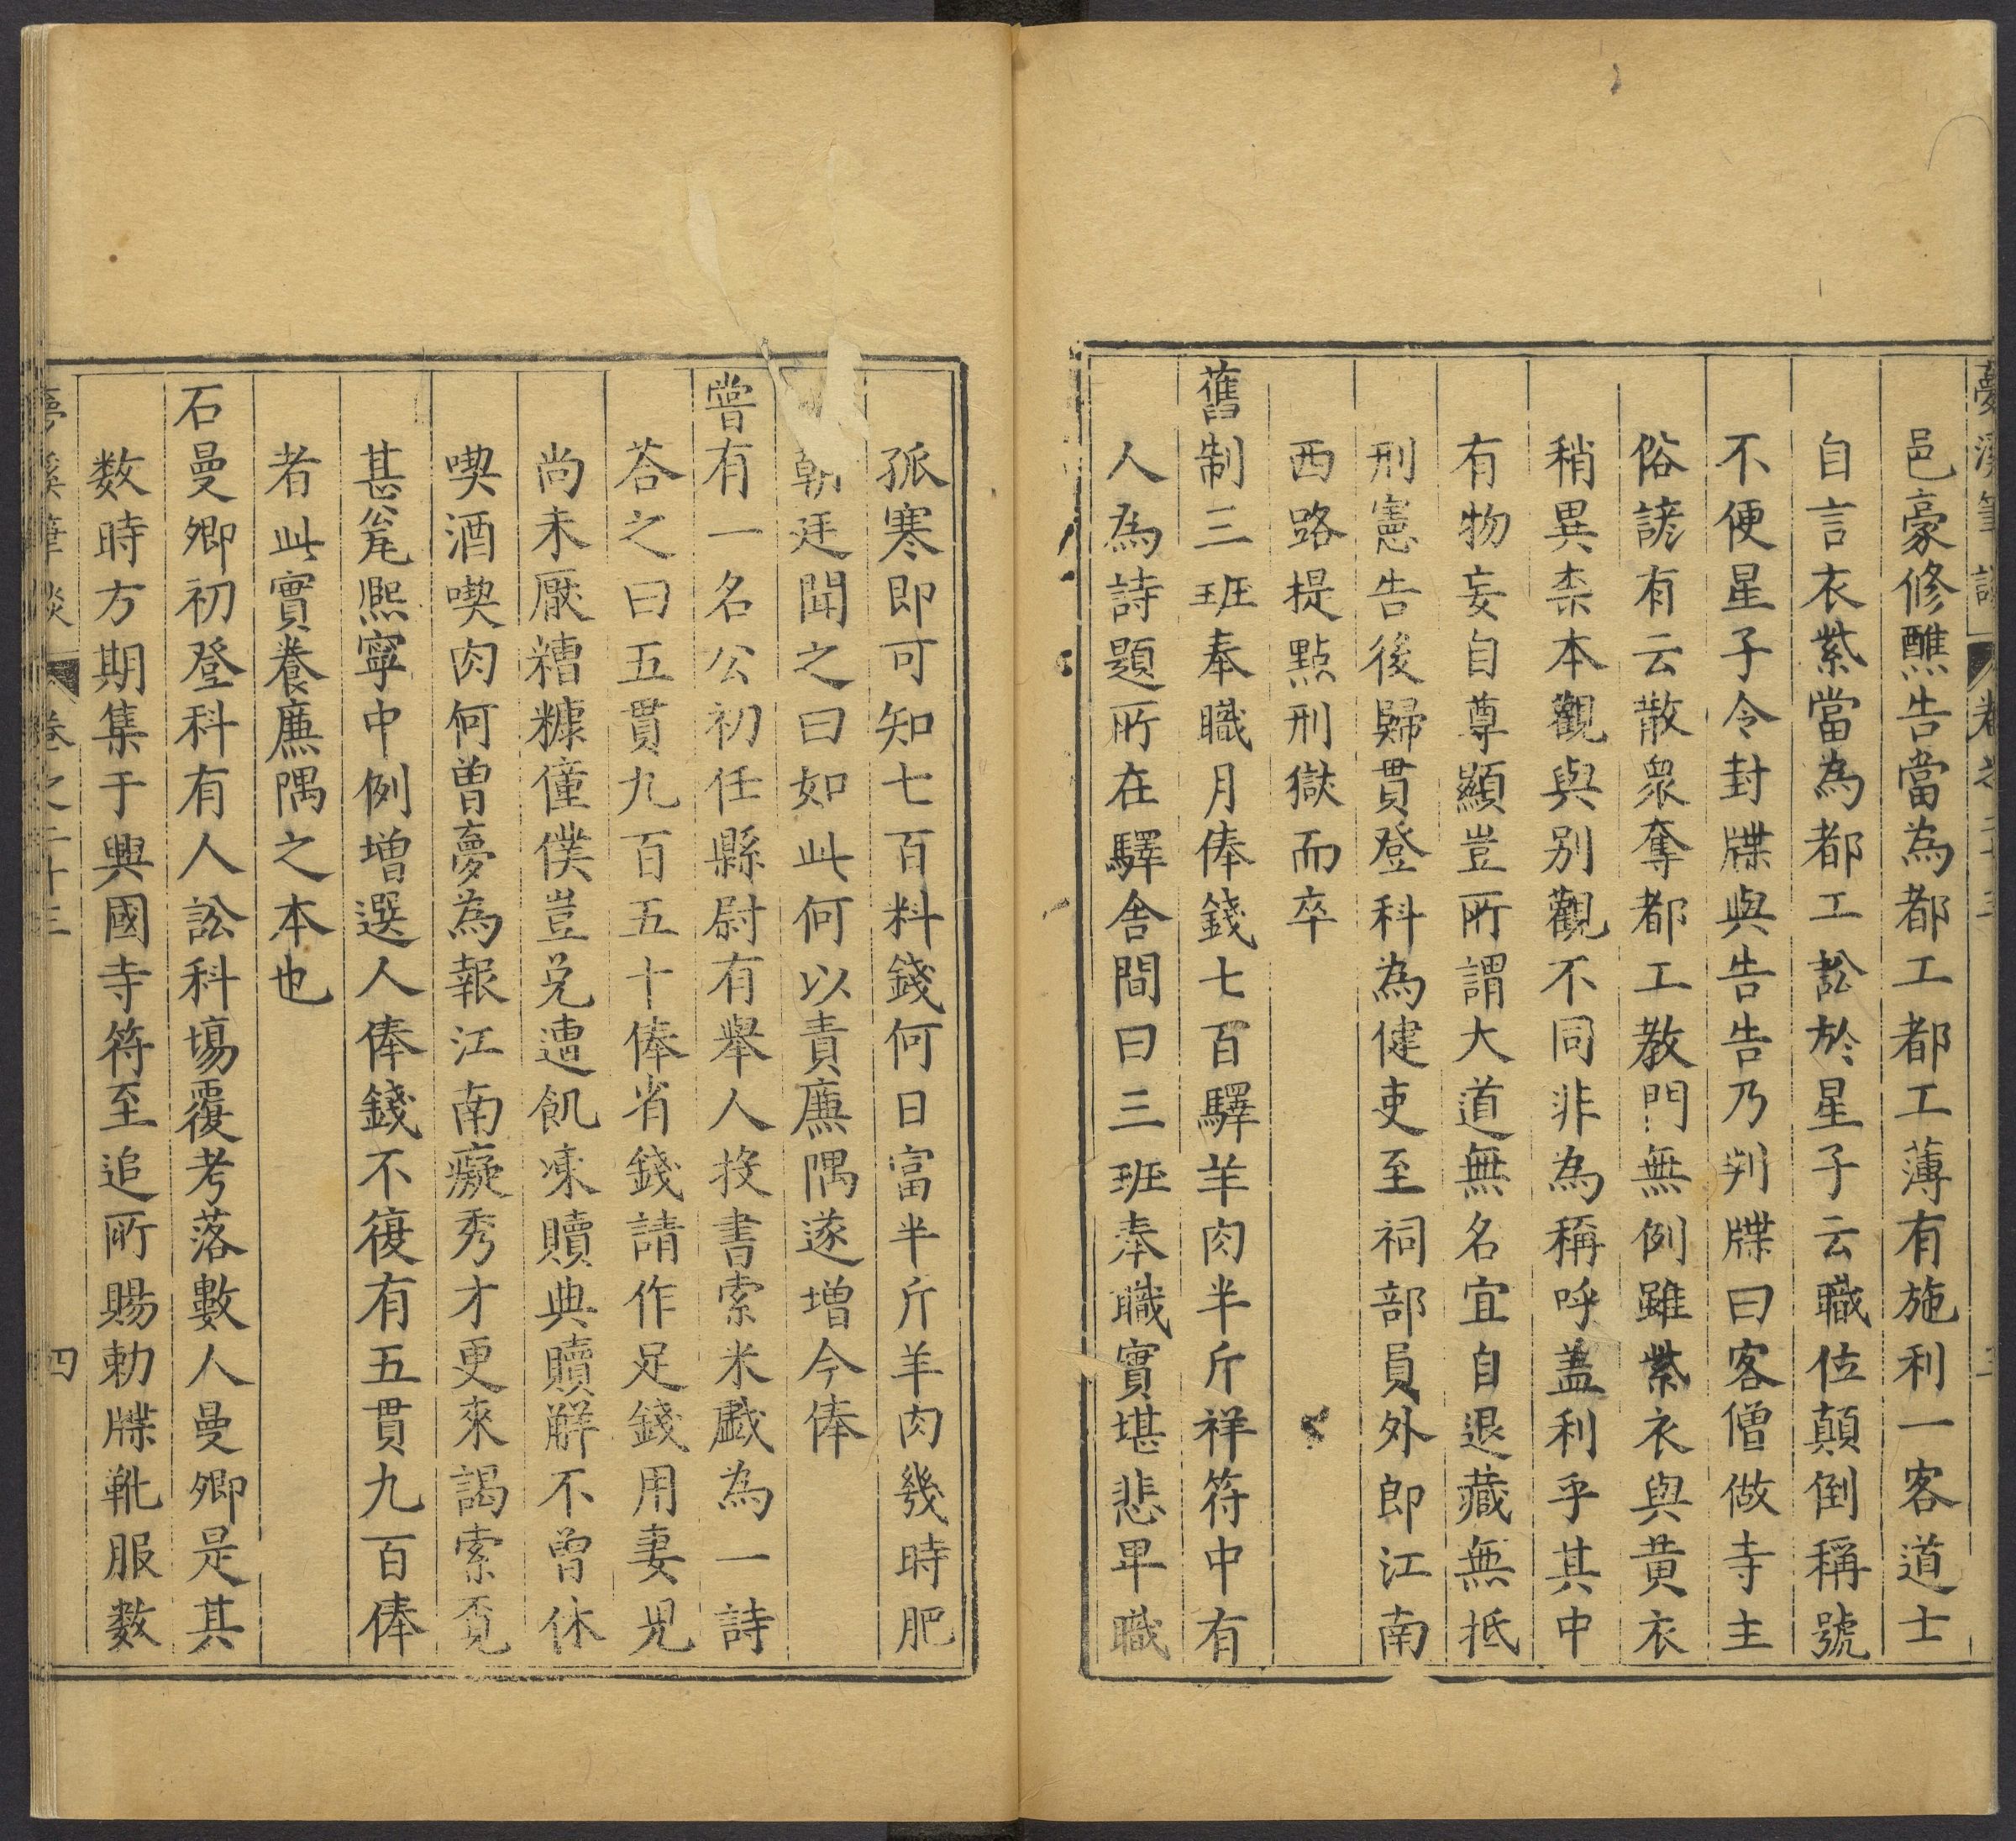 夢溪筆談 卷之二十三 三
邑豪修醮告當為都工都工薄有施利一客道士
自言衣紫當為都工訟於星子云職位顛倒稱號
不便星子令封牒與告告乃判牒曰客僧做寺主
俗諺有云散衆奪都工教門無例雖紫衣與黄衣
稍異柰本觀與別觀不同非為稱呼蓋利乎其中
有物妄自尊顯豈所謂大道無名宜自退藏無抵
刑憲告後歸貫登科為健吏至祠部員外郎江南
西路提點刑獄而卒
舊制三班奉職月俸錢七百驛羊肉半斤祥符中有
人為詩題所在驛舍間曰三班奉職實堪悲卑職
孤寒即可知七百料錢何日富半斤羊肉幾時肥
朝廷聞之曰如此何以責廉隅遂增今俸
嘗有一名公初任縣尉有舉人投書索米戯為一詩
荅之曰五貫九百五十俸省錢請作足錢用妻兒
尚未厭糟糠僮僕豈免遭飢凍贖典贖解不曾休
喫酒喫肉何曾夢為報江南癡秀才更來謁索覔
甚瓮熈寧中例增選人俸錢不復有五貫九百俸
者此實養廉隅之本也
石曼卿初登科有人訟科塲覆考落數人曼卿是其
数時方期集于興國寺符至追所賜勅牒靴服数
夢溪筆談 卷之二十三 四